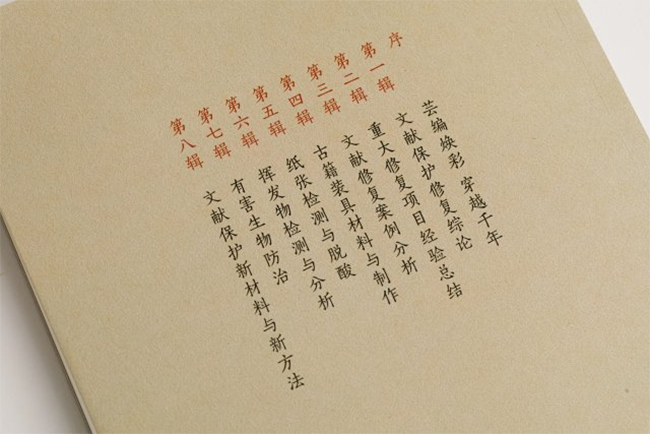 序 芸编焕彩 穿越千年
第一辑 文献保护修复综论
第二辑 重大修复项目经验总结
第三辑 文献修复案例分析
第四辑 古籍装具材料与制作
第五辑 纸张检测与脱酸
第六辑 挥发物检测与分析
第七辑 有害生物防治
第八辑 文献保护新材料与新方法